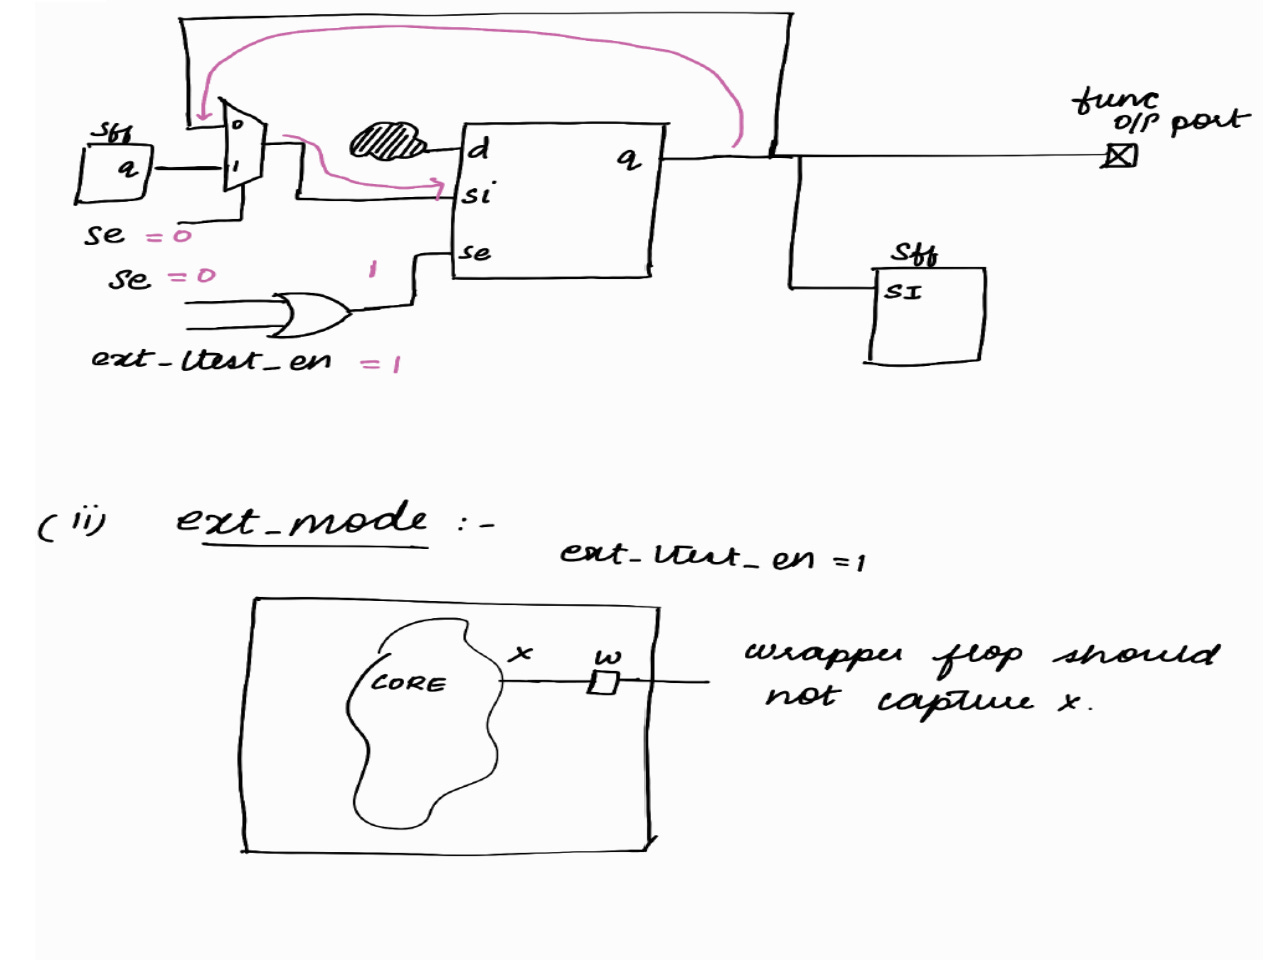 func
O/P port
sff
0
q
1
d
q
si
se = 0
sff
se
se = 0
1
SI
ext_ltest_en = 1
(ii) ext_mode :-
ext_ltest_en = 1
x
w
CORE
wrapper flop should
not capture x.